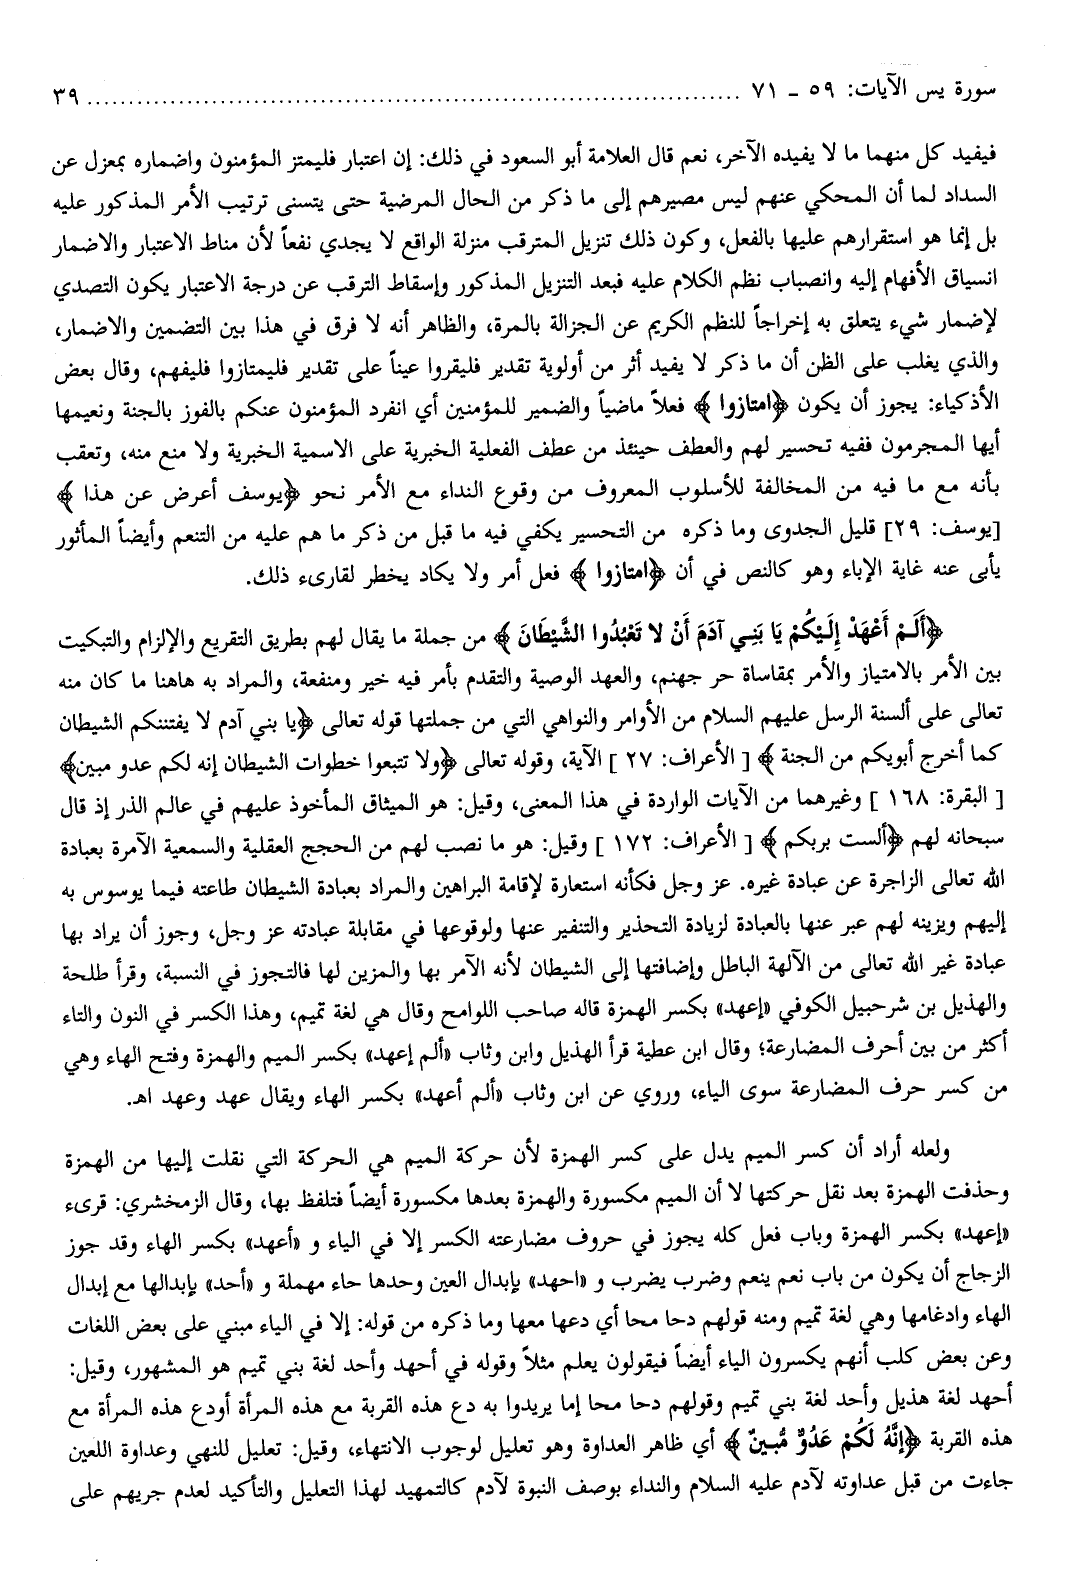 سورة يس الآيات: ٥٩ - ٧١ ........................................ ٣٩
فيفيد كل منهما ما لا يفيده الآخر، نعم قال العلامة أبو السعود في ذلك: إن اعتبار فليمتز المؤمنون واضماره بمعزل عن
السداد لما أن المحكي عنهم ليس مصيرهم إلى ما ذكر من الحال المرضية حتى يتسنى ترتيب الأمر المذكور عليه
بل إنما هو استقرارهم عليها بالفعل، وكون ذلك تنزيل المترقب منزلة الواقع لا يجدي نفعاً لأن مناط الاعتبار والاضمار
انسياق الأفهام إليه وانصباب نظم الكلام عليه فبعد التنزيل المذكور وإسقاط الترقب عن درجة الاعتبار يكون التصدي
لإضمار شيء يتعلق به إخراجاً للنظم الكريم عن الجزالة بالمرة، والظاهر أنه لا فرق في هذا بين التضمين والاضمار،
والذي يغلب على الظن أن ما ذكر لا يفيد أثر من أولوية تقدير فليقروا عيناً على تقدير فليمتازوا فليفهم، وقال بعض
الأذكياء: يجوز أن يكون ﴿امتازوا﴾ فعلاً ماضياً والضمير للمؤمنين أي انفرد المؤمنون عنكم بالفوز بالجنة ونعيمها
أيها المجرمون ففيه تحسير لهم والعطف حينئذ من عطف الفعلية الخبرية على الاسمية الخبرية ولا منع منه، وتعقب
بأنه مع ما فيه من المخالفة للأسلوب المعروف من وقوع النداء مع الأمر نحو ﴿يوسف أعرض عن هذا﴾
[يوسف: ٢٩] قليل الجدوى وما ذكره من التحسير يكفي فيه ما قبل من ذكر ما هم عليه من التنعم وأيضاً المأثور
يأبى عنه غاية الإباء وهو كالنص في أن ﴿امتازوا﴾ فعل أمر ولا يكاد يخطر لقارىء ذلك.
﴿أَلَمْ أَعْهَدْ إِلَيْكُمْ يَا بَنِي آدَمَ أَنْ لا تَعْبُدُوا الشَّيْطَانَ﴾ من جملة ما يقال لهم بطريق التقريع والإلزام والتبكيت
بين الأمر بالامتياز والأمر بمقاساة حر جهنم، والعهد الوصية والتقدم بأمر فيه خير ومنفعة، والمراد به هاهنا ما كان منه
تعالى على ألسنة الرسل عليهم السلام من الأوامر والنواهي التي من جملتها قوله تعالى ﴿يا بني آدم لا يفتننكم الشيطان
كما أخرج أبويكم من الجنة﴾ [الأعراف: ٢٧] الآية، وقوله تعالى ﴿ولا تتبعوا خطوات الشيطان إنه لكم عدو مبين﴾
[البقرة: ١٦٨] وغيرهما من الآيات الواردة في هذا المعنى، وقيل: هو الميثاق المأخوذ عليهم في عالم الذر إذ قال
سبحانه لهم ﴿ألست بربكم﴾ [الأعراف: ١٧٢] وقيل: هو ما نصب لهم من الحجج العقلية والسمعية الآمرة بعبادة
الله تعالى الزاجرة عن عبادة غيره. عز وجل فكأنه استعارة لإقامة البراهين والمراد بعبادة الشيطان طاعته فيما يوسوس به
إليهم ويزينه لهم عبر عنها بالعبادة لزيادة التحذير والتنفير عنها ولوقوعها في مقابلة عبادته عز وجل، وجوز أن يراد بها
عبادة غير الله تعالى من الآلهة الباطل وإضافتها إلى الشيطان لأنه الآمر بها والمزين لها فالتجوز في النسبة، وقرأ طلحة
والهذيل بن شرحبيل الكوفي «إعهد» بكسر الهمزة قاله صاحب اللوامح وقال هي لغة تميم، وهذا الكسر في النون والتاء
أكثر من بين أحرف المضارعة؛ وقال ابن عطية قرأ الهذيل وابن وثاب «ألم إعهد» بكسر الميم والهمزة وفتح الهاء وهي
من كسر حرف المضارعة سوى الياء، وروي عن ابن وثاب «ألم أعهد» بكسر الهاء ويقال عهد وعهد اهـ.
ولعله أراد أن كسر الميم يدل على كسر الهمزة لأن حركة الميم هي الحركة التي نقلت إليها من الهمزة
وحذفت الهمزة بعد نقل حركتها لا أن الميم مكسورة والهمزة بعدها مكسورة أيضاً فتلفظ بها، وقال الزمخشري: قرىء
«إعهد» بكسر الهمزة وباب فعل كله يجوز في حروف مضارعته الكسر إلا في الياء و «أعهد» بكسر الهاء وقد جوز
الزجاج أن يكون من باب نعم ينعم وضرب يضرب و «احهد» بإبدال العين وحدها حاء مهملة و «أحد» بإبدالها مع إبدال
الهاء وادغامها وهي لغة تميم ومنه قولهم دحا محا أي دعها معها وما ذكره من قوله: إلا في الياء مبني على بعض اللغات
وعن بعض كلب أنهم يكسرون الياء أيضاً فيقولون يعلم مثلاً وقوله في أحهد وأحد لغة بني تميم هو المشهور، وقيل:
أحهد لغة هذيل وأحد لغة بني تميم وقولهم دحا محا إما يريدوا به دع هذه القربة مع هذه المرأة أودع هذه المرأة مع
هذه القربة ﴿إِنَّهُ لَكُمْ عَدُوٌّ مُّبِينٌ﴾ أي ظاهر العداوة وهو تعليل لوجوب الانتهاء، وقيل: تعليل للنهي وعداوة اللعين
جاءت من قبل عداوته لآدم عليه السلام والنداء بوصف النبوة لآدم كالتمهيد لهذا التعليل والتأكيد لعدم جريهم على